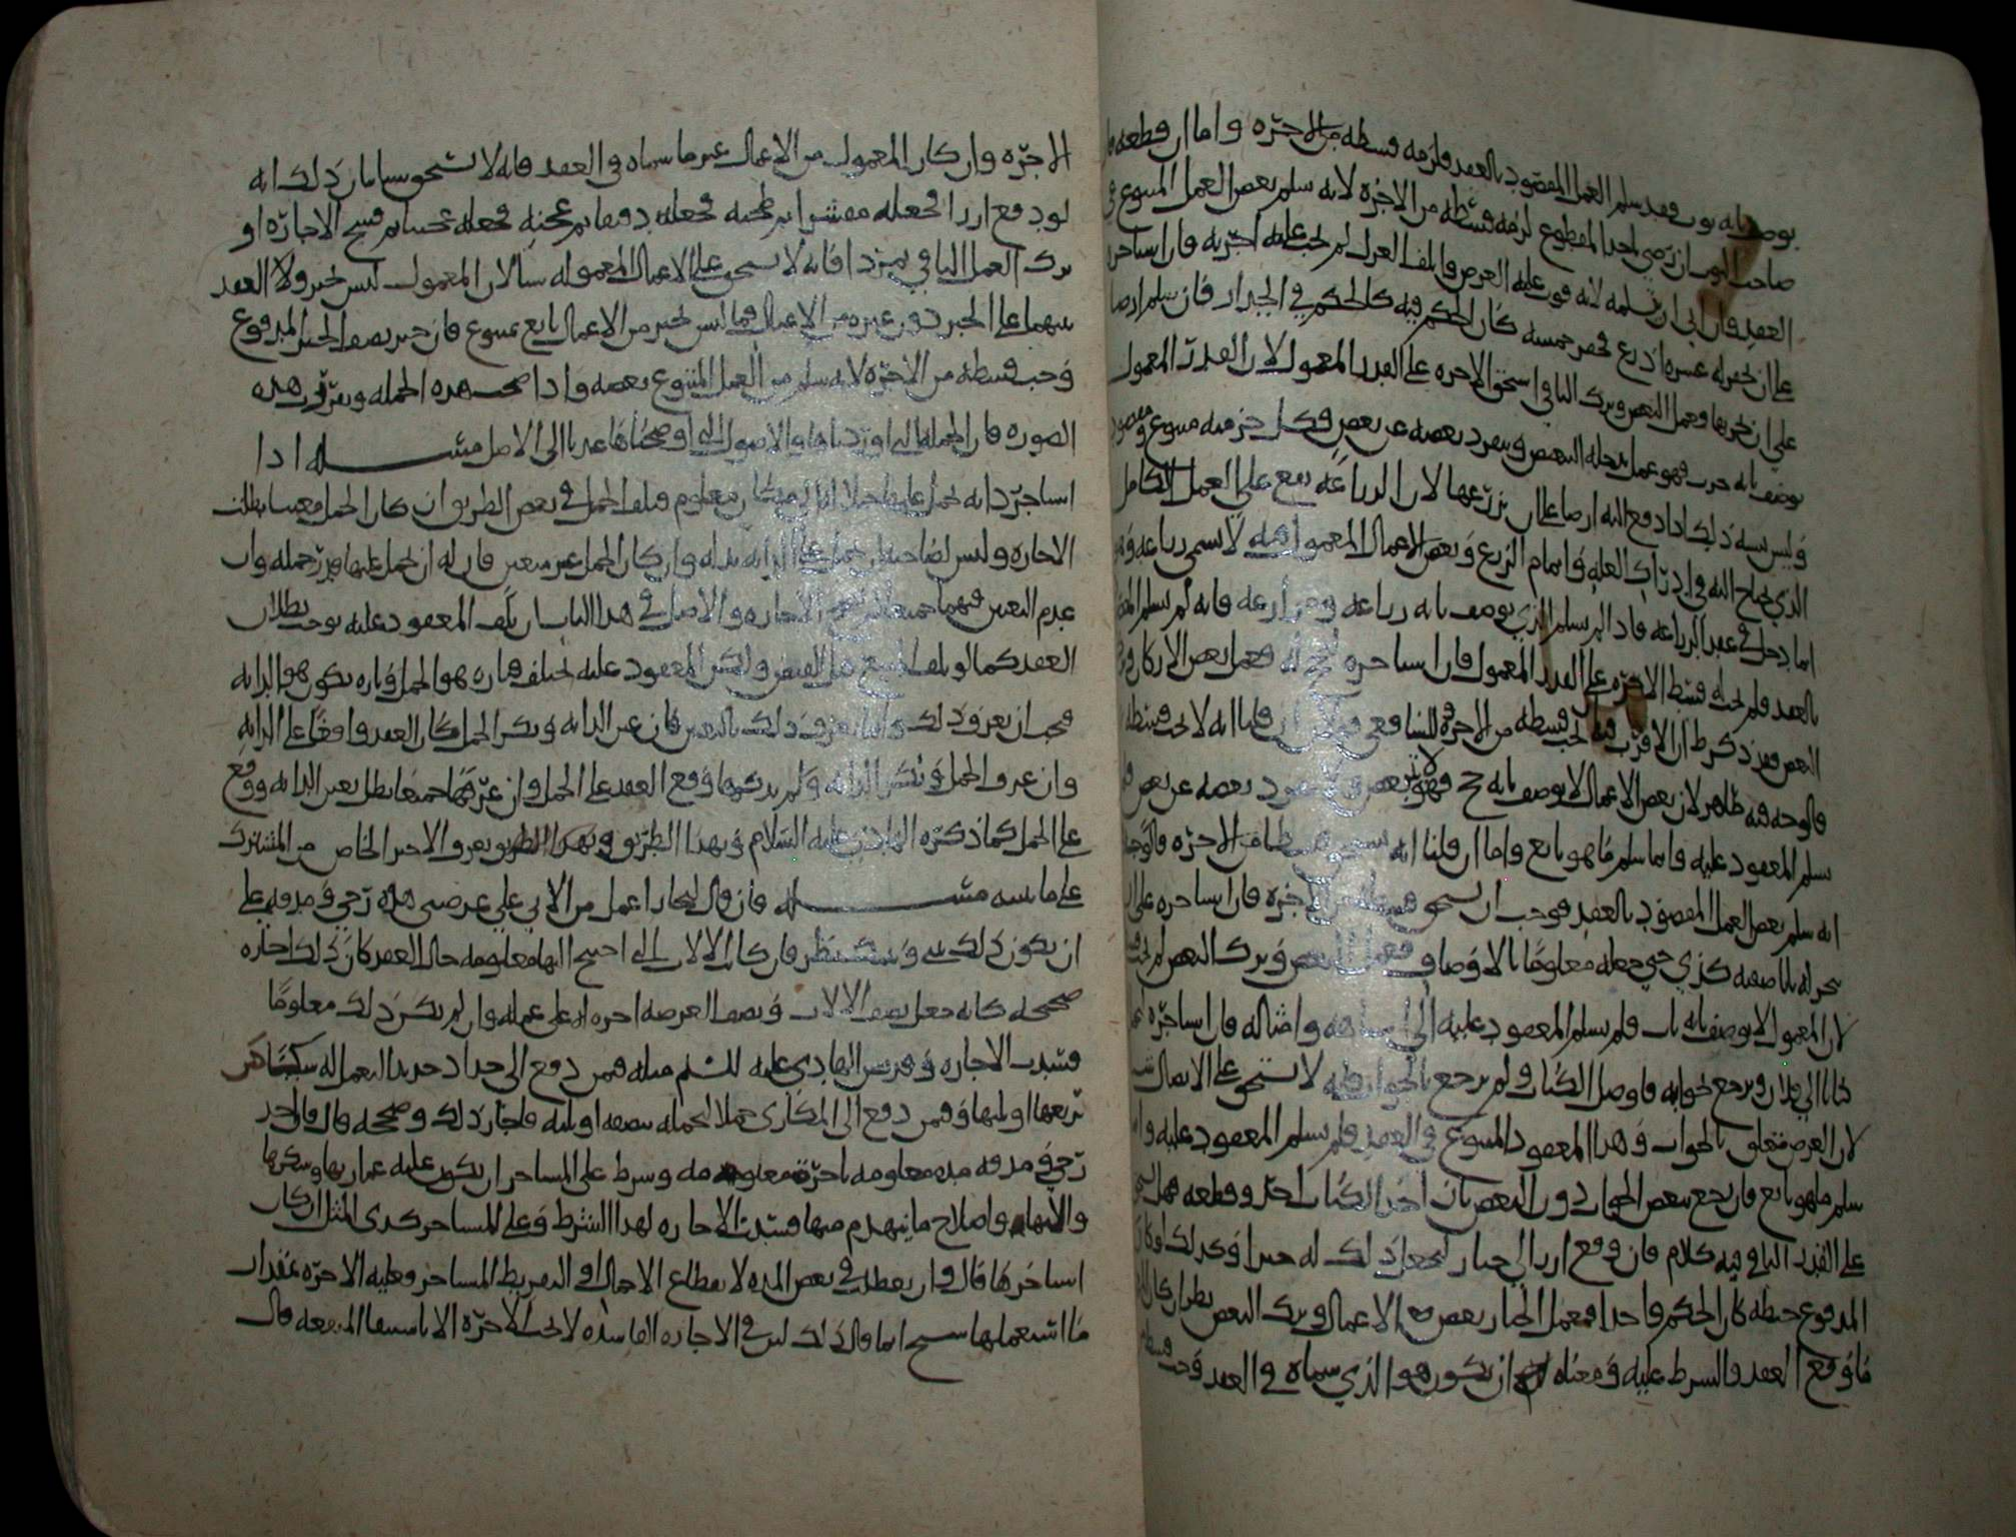 يوصف بانه ثوب فقد سلم العمل المقصود بالعقد فلزمه قسطه من الاجره واما ان قطعه
صاحب الثوب ان رضي باخذ المقطوع لزمه قسطه من الاجره لانه سلم بعض العمل المتنوع في
العقد وان ابى ان يتسلمه لانه فوت عليه الغرض واتلف الغزل لم يجب عليه اجرته فان استاجره
على ان يحفر له عشره اذرع فحفر خمسه كان الحكم فيه كالحكم في الجدار فان سلم ارضا
على ان يحرثها فعمل البعض وترك الباقي استحق الاجره على القدر المعمول لان القدر المعمول
يوصف بانه حرث فهو عمل يدخله البعض وينفرد بعضه عن بعض فكل جز منه متنوع ومقصود
وليس يشبه ذلك اذا دفع اليه ارضا على ان يزرعها لان الزراعه تقع على العمل الكامل
الذي يحتاج اليه في ادراك الغله واتمام الزرع وبعض الاعمال المعموله لا تسمى زراعه
انما دخل في عقد الزراعه فاذا لم يسلم الذي يوصف بانه زراعه ومزارعه فانه لم يسلم
بالعقد فلم يجب له قسط الاجره على القدر المعمول فان استاجره فعمل بعض الاركان
البعض فقد ذكر ط ان الاقرب انه يجب قسطه من الاجره وللشافعي قولان ان قلنا انه لا يجب قسطه
فالوجه فيه ظاهر لان بعض الاعمال لا يوصف بانه حج فهو لا يتبعض ولا ينفرد بعضه عن بعض
سلم المعقود عليه وانما سلم ما هو تابع واما ان قلنا انه يستحق قسطا من الاجره فالوجه
انه سلم بعض العمل المقصود بالعقد فوجب ان يستحق قسطه من الاجره فان استاجره على ان
ينجر له بابا صفته كذي حتى جعله معلوما بالاوصاف فعمل البعض وترك البعض لم يجب
لان المعمول لا يوصف بانه باب فلم يسلم المعقود عليه الى وامثاله فان استاجره
كتابا الى فلان ويرجع بجوابه فاوصل الكتاب ولم يرجع بالجواب فانه لا يستحق على الايصال
لان الغرض متعلق بالجواب وهذا المعقود المتنوع في العقد فلم يسلم المعقود عليه وانما
سلم ما هو تابع فان رجع ببعض الجواب دون البعض بان اخذ الكتاب اخر وقطعه فهل يستحق
على القدر الباقي فيه كلام فان دفع ارزا الى خباز ليجعل ذلك له خبزا وكذلك لو كان
المدفوع حنطه كان الحكم واحدا فعمل الخباز بعض الاعمال وترك البعض نظر ان كان
ما وقع العقد والشرط عليه ومعناه ان يكون هو الذي سماه في العقد وجب قسطه
الاجره وان كان المعمول من الاعمال غير ما سماه في العقد فانه لا يستحق شيا بيان ذلك انه
لو دفع ارزا فجعله مقشرا ثم طحنه فجعله دقيقا ثم عجنه فجعله عجينا ثم فسخ الاجاره او
ترك العمل الباقي تمردا فانه لا يستحق على الاعمال المعموله شيا لان المعمول ليس خبز ولا العقد
بينهما على الخبز دون غيره من الاعمال فما ليس بخبز من الاعمال تابع متبوع فان خبز نصف الخبز المدفوع
وجب قسطه من الاجره لانه سلم من العمل المتنوع بعضه واذا صحت هذه الجمله وتقررت هذه
الصوره فان الجمله التي اوردناها والاصول التي اوضحناها عدنا الى الاصل مسله اذا
استاجر دابه ليحمل عليها حملا الى مكان معلوم فتلف الحمل في بعض الطريق ان كان الحمل معينا بطلت
الاجاره وليس لصاحبه ان يحمل على الدابه بدله وان كان الحمل غير معين فان له ان يحمل عليها قدر حمله وان
عدم التعيين فيهما جميعا لم تصح الاجاره والاصل في هذا الباب ان تلف المعقود عليه يوجب بطلان
العقد كما لو تلف المبيع قبل القبض ولكن المعقود عليه يختلف فتاره هو الحمل وتاره يكون هو الدابه
فيجب ان يعرف ذلك وانما يعرف ذلك بالتعيين فان عين الدابه ونكر الحمل كان العقد واقعا على الدابه
وان عرف الحمل ونكر الدابه ولم يذكرها وقع العقد على الحمل وان عرفهما جميعا بطل تعيين الدابه ووقع
على الحمل كما ذكره الهادي عليه السلام وبهذا الطريق وبهذا الطريق يعرف الاجير الخاص من المشترك
على ما نبينه مسله فان قال لنجار اعمل من الات على عرصتي هذه رحى ومدقه على
ان يكون ذلك بيني وبينك ينظر فان كانت الالات التي احتيج اليها معلومه حال العقد كان ذلك اجاره
صحيحه كانه جعل نصف الالات ونصف العرصه اجره له على عمله وان لم يكن ذلك معلوما
فسدت الاجاره وقد نص الهادي عليه السلم مثله فمن دفع الى حداد حديدا ليعمل له سكينا
بربعها او ثلثها وفمن دفع الى المكاري حملا ليحمله بنصفه او ثلثه فاجاز ذلك وصححه قال فان اخذ
رحى ومدقه مده معلومه باجره معلومه وشرط على المستاجر ان يكون عليه عمارتها وسكرها
والانهار واصلاح ما ينهدم منها فسدت الاجاره لهذا الشرط وعلى المستاجر كرى المثل ان كان
استاجرها قال وان تعطلت في بعض المده لانقطاع الاحمال او لتفريط المستاجر فعليه الاجره بمقدار
ما استعملها سح انما قال ذلك لان في الاجاره الفاسده لا تجب الاجره الا باستيفا المنفعه قال